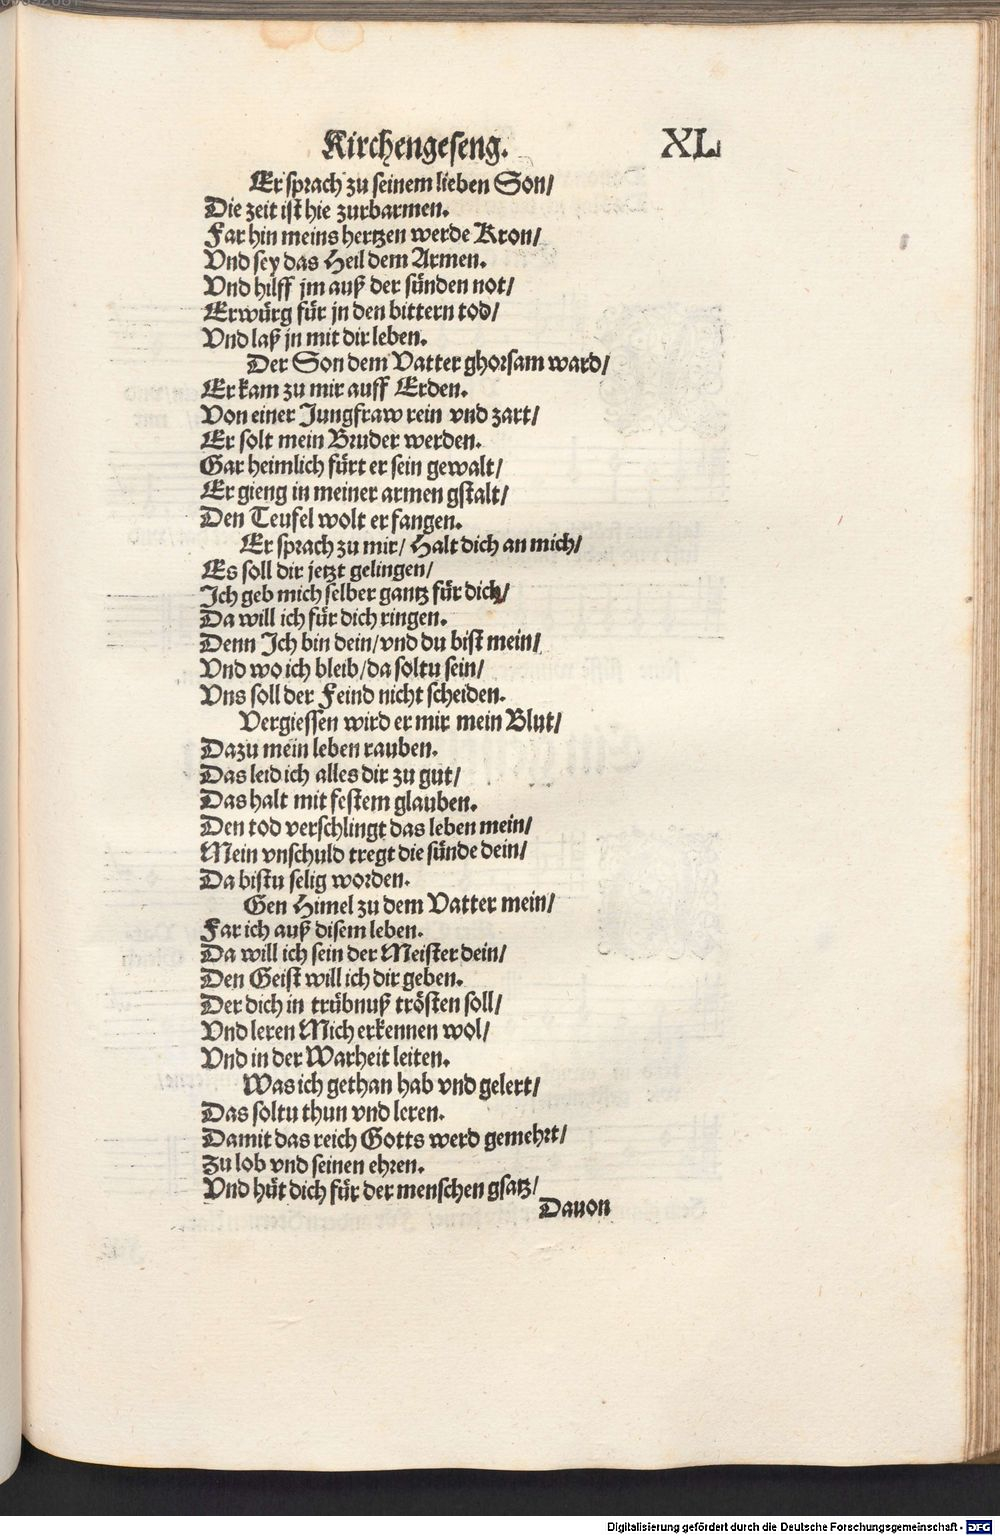 Kirchengeseng. XL
Er sprach zu seinem lieben Son/
Die zeit ist hie zurbarmen.
Far hin meins hertzen werde Kron/
Vnd sey das Heil dem Armen.
Vnd hilff jm auß der sünden not/
Erwürg für jn den bittern tod/
Vnd laß jn mit dir leben.
Der Son dem Vatter ghorsam ward/
Er kam zu mir auff Erden.
Von einer Jungfraw rein vnd zart/
Er solt mein Bruder werden.
Gar heimlich fürt er sein gewalt/
Er gieng in meiner armen gstalt/
Den Teufel wolt er fangen.
Er sprach zu mir/ Halt dich an mich/
Es soll dir jetzt gelingen/
Ich geb mich selber gantz für dich/
Da will ich für dich ringen.
Denn Ich bin dein/vnd du bist mein/
Vnd wo ich bleib/da soltu sein/
Vns soll der Feind nicht scheiden.
Vergiessen wird er mir mein Blut/
Dazu mein leben rauben.
Das leid ich alles dir zu gut/
Das halt mit festem glauben.
Den tod verschlingt das leben mein/
Mein vnschuld tregt die sünde dein/
Da bistu selig worden.
Gen Himel zu dem Vatter mein/
Far ich auß disem leben.
Da will ich sein der Meister dein/
Den Geist will ich dir geben.
Der dich in trübnuß trösten soll/
Vnd leren Mich erkennen wol/
Vnd in der Warheit leiten.
Was ich gethan hab vnd gelert/
Das soltu thun vnd leren.
Damit das reich Gotts werd gemehrt/
Zu lob vnd seinen ehren.
Vnd hüt dich für der menschen gsatz/
Dauon
Digitalisierung gefördert durch die Deutsche Forschungsgemeinschaft - DFG